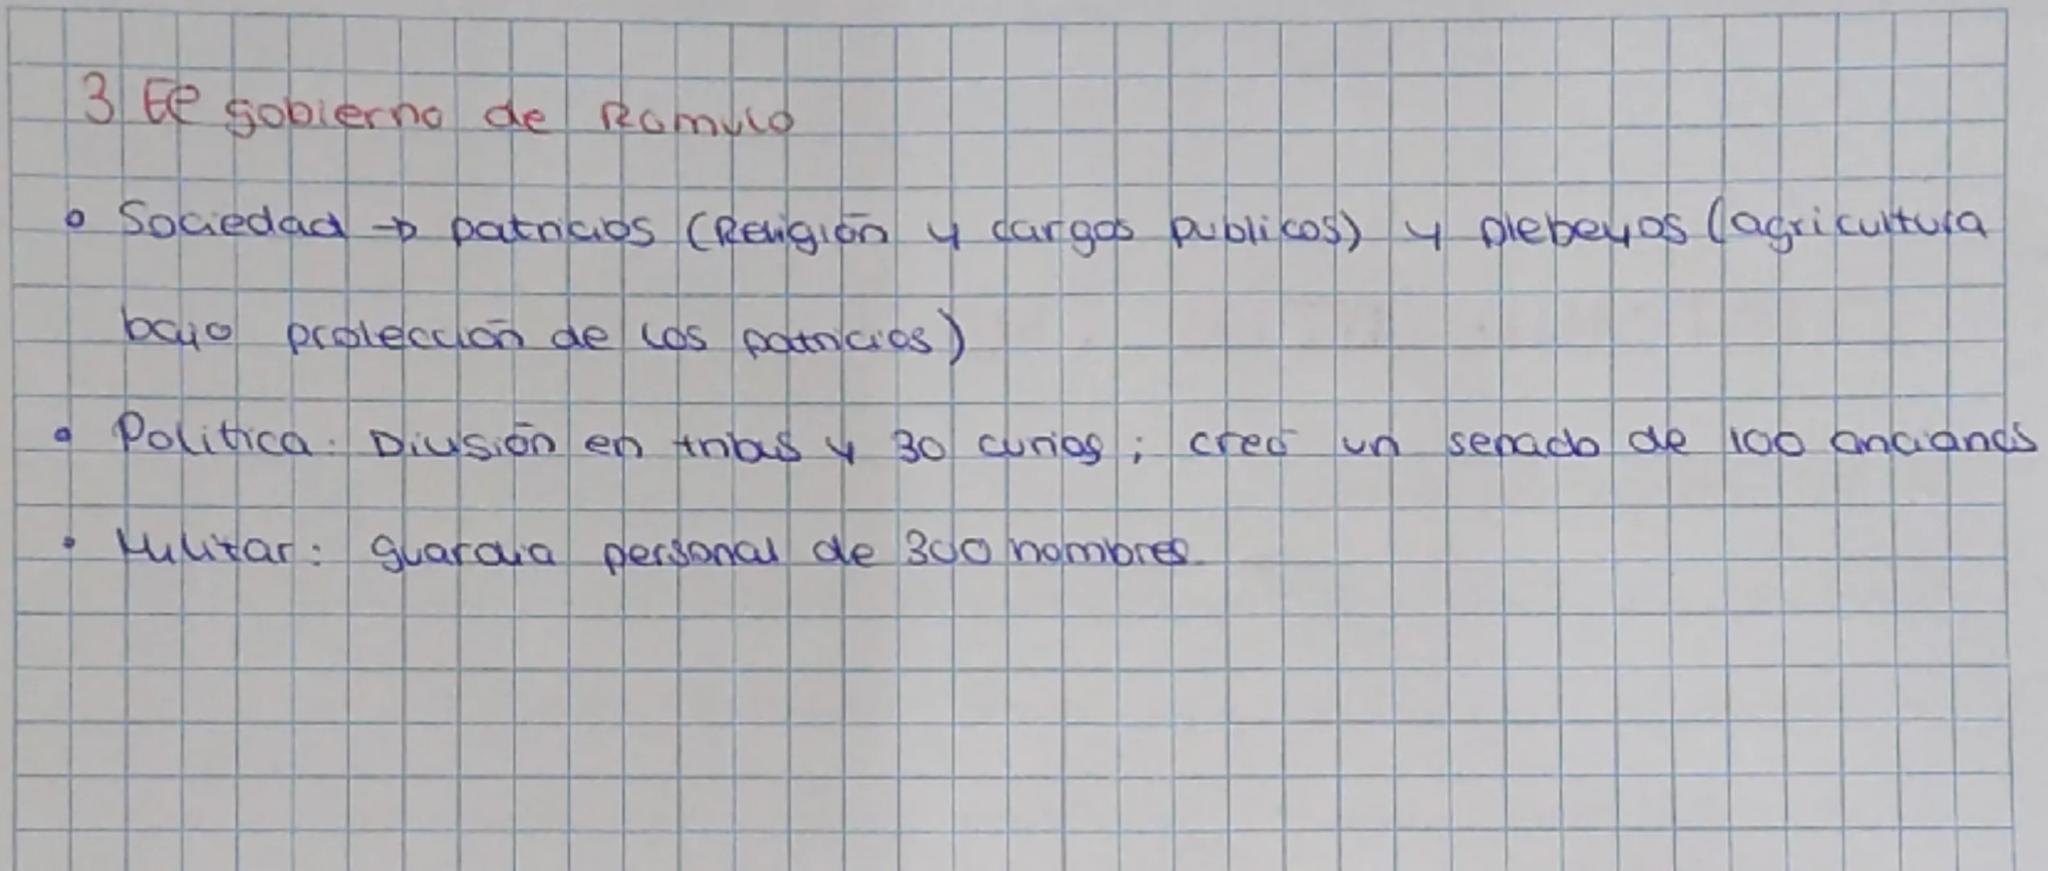 3 El gobierno de Romulo
• Sociedad → patricios (Religión y cargos publicos) y plebeyos (agricultura
bajo protección de los patricios)
• Politica: División en tribus y 30 curias; creó un senado de 100 ancianos
• Militar: guardia personal de 300 hombres